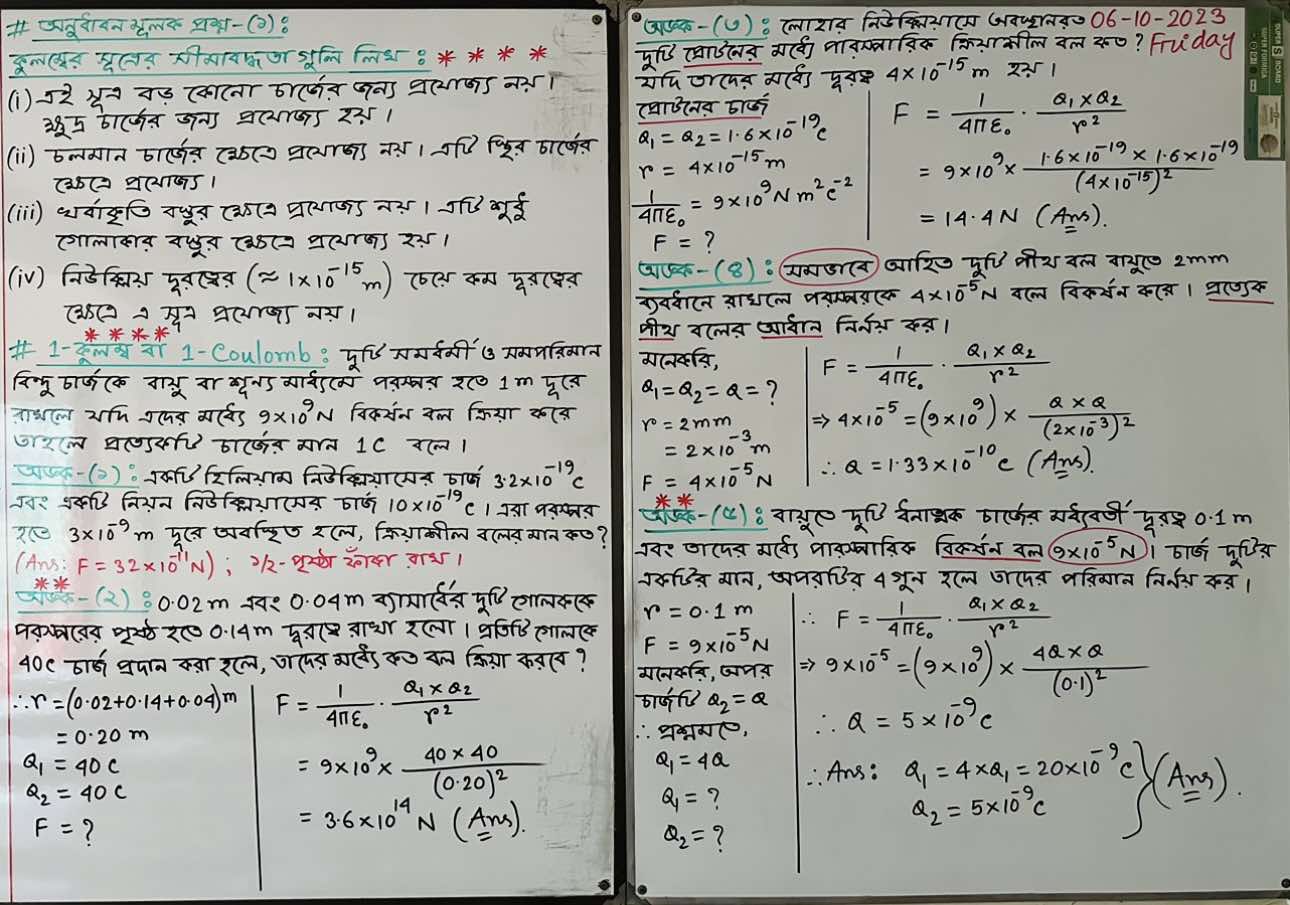 # অনুধাবন মূলক প্রশ্ন-(১):
কুলম্বের সূত্রের সীমাবদ্ধতা গুলি লিখ : * * * *
(i) এই সূত্র বড় কোনো চার্জের জন্য প্রযোজ্য নয়।
ক্ষুদ্র চার্জের জন্য প্রযোজ্য হয়।
(ii) চলমান চার্জের ক্ষেত্রে প্রযোজ্য নয়। এটি স্থির চার্জের
ক্ষেত্রে প্রযোজ্য।
(iii) খর্বাকৃতি বস্তুর ক্ষেত্রে প্রযোজ্য নয়। এটি শুধু
গোলাকার বস্তুর ক্ষেত্রে প্রযোজ্য হয়।
(iv) নিউক্লিয় দূরত্বের (≈ 1×10⁻¹⁵ m) চেয়ে কম দূরত্বের
ক্ষেত্রে এ সূত্র প্রযোজ্য নয়।
* * * *
# 1-কুলম্ব বা 1-Coulomb : দুটি সমধর্মী ও সমপরিমান
বিন্দু চার্জকে বায়ু বা শূন্য মাধ্যমে পরস্পর হতে 1m দূরে
রাখলে যদি এদের মধ্যে 9×10⁹ N বিকর্ষন বল ক্রিয়া করে
তাহলে প্রত্যেকটি চার্জের মান 1C বলে।
অঙ্ক-(১) : একটি হিলিয়াম নিউক্লিয়াসের চার্জ 3.2×10⁻¹⁹ C
এবং একটি নিয়ন নিউক্লিয়াসের চার্জ 10×10⁻¹⁹ C। এরা পরস্পর
হতে 3×10⁻⁹ m দূরে অবস্থিত হলে, ক্রিয়াশীল বলের মান কত?
(Ans: F = 32×10⁻¹¹ N) ; ১/২-পৃষ্ঠা ফাঁকা রাখ।
* *
অঙ্ক-(২) : 0.02m এবং 0.04m ব্যাসার্ধের দুটি গোলককে
পরস্পরের পৃষ্ঠ হতে 0.14m দূরত্বে রাখা হলো। প্রতিটি গোলকে
40C চার্জ প্রদান করা হলে, তাদের মধ্যে কত বল ক্রিয়া করবে?
∴ r = (0.02+0.14+0.04)m
= 0.20 m
Q₁ = 40 C
Q₂ = 40 C
F = ?
F = 1/4πε₀ · Q₁ × Q₂/r²
= 9×10⁹ × 40 × 40/(0.20)²
= 3.6×10¹⁴ N (Ans).
অঙ্ক-(৩) : লোহার নিউক্লিয়াসে অবস্থানরত 06-10-2023
দুটি প্রোটনের মধ্যে পারস্পারিক ক্রিয়াশীল বল কত? Friday
যদি তাদের মধ্যে দূরত্ব 4×10⁻¹⁵ m হয়।
প্রোটনের চার্জ
Q₁ = Q₂ = 1.6×10⁻¹⁹ C
r = 4×10⁻¹⁵ m
1/4πε₀ = 9×10⁹ N m² C⁻²
F = ?
F = 1/4πε₀ · Q₁ × Q₂/r²
= 9×10⁹ × 1.6×10⁻¹⁹ × 1.6×10⁻¹⁹/(4×10⁻¹⁵)²
= 14.4 N (Ans).
অঙ্ক-(৪) : সমভাবে আহিত দুটি পীথ বল বায়ুতে 2mm
ব্যবধানে রাখলে পরস্পরকে 4×10⁻⁵ N বলে বিকর্ষন করে। প্রত্যেক
পীথ বলের আধান নির্নয় কর।
মনেকরি,
Q₁ = Q₂ = Q = ?
r = 2mm
= 2×10⁻³ m
F = 4×10⁻⁵ N
F = 1/4πε₀ · Q₁ × Q₂/r²
⇒ 4×10⁻⁵ = (9×10⁹) × Q × Q/(2×10⁻³)²
∴ Q = 1.33×10⁻¹⁰ C (Ans).
* *
অঙ্ক-(৫) : বায়ুতে দুটি ধনাত্মক চার্জের মধ্যবর্তী দূরত্ব 0.1 m
এবং তাদের মধ্যে পারস্পারিক বিকর্ষন বল 9×10⁻⁵ N। চার্জ দুটির
একটির মান, অপরটির 4 গুন হলে তাদের পরিমান নির্নয় কর।
r = 0.1 m
F = 9×10⁻⁵ N
মনেকরি, অপর
চার্জটি Q₂ = Q
∴ প্রশ্নমতে,
Q₁ = 4Q
Q₁ = ?
Q₂ = ?
∴ F = 1/4πε₀ · Q₁ × Q₂/r²
⇒ 9×10⁻⁵ = (9×10⁹) × 4Q × Q/(0.1)²
∴ Q = 5×10⁻⁹ C
∴ Ans: Q₁ = 4×Q₁ = 20×10⁻⁹ C
Q₂ = 5×10⁻⁹ C } (Ans).